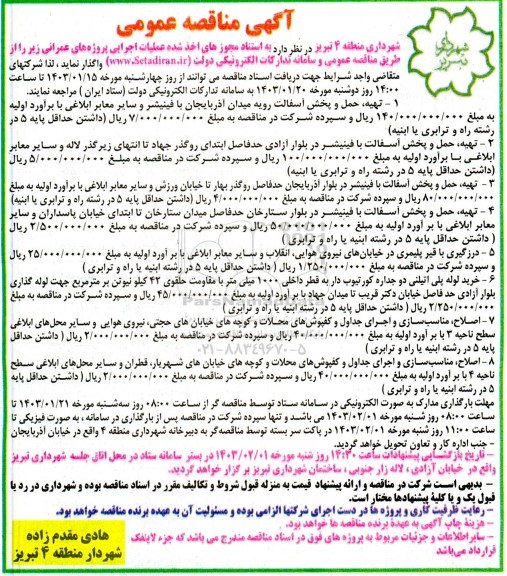 آگهی مناقصه عمومی
شهرداری منطقه ۴ تبریز در نظر دارد به استناد مجوز های اخذ شده عملیات اجرایی پروژه‌های عمرانی زیر را از
طریق مناقصه عمومی و سامانه تدارکات الکترونیکی دولت (www.Setadiran.ir) واگذار نماید ، لذا شرکتهای
متقاضی واجد شرایط جهت دریافت اسناد مناقصه می توانند از روز چهارشنبه مورخه ۱۴۰۳/۰۱/۱۵ تا ساعت
۱۴:۰۰ روز دوشنبه مورخه ۱۴۰۳/۰۱/۲۰ به سامانه تدارکات الکترونیکی دولت (ستاد ایران ) مراجعه نمایند.
۱ – تهیه، حمل و پخش آسفالت رویه میدان آذربایجان با فینیشر و سایر معابر ابلاغی با برآورد اولیه
به مبلغ ۱۴۰/۰۰۰/۰۰۰/۰۰۰ ریال و سپرده شرکت در مناقصه به مبلغ ۷/۰۰۰/۰۰۰/۰۰۰ ریال (داشتن حداقل پایه ۵ در
رشته راه و ترابری یا ابنیه)
۲ – تهیه، حمل و پخش آسفالت با فینیشر در بلوار آزادی حدفاصل ابتدای روگذر جهاد تا انتهای زیرگذر لاله و سایر معابر
ابلاغی با برآورد اولیه به مبلغ ۱۰۰/۰۰۰/۰۰۰/۰۰۰ ریال و سپرده شرکت در مناقصه به مبلغ ۵/۰۰۰/۰۰۰/۰۰۰ ریال
(داشتن حداقل پایه ۵ در رشته راه و ترابری یا ابنیه)
۳ – تهیه، حمل و پخش آسفالت با فینیشر در بلوار آذربایجان حدفاصل روگذر بهار تا خیابان ورزش و سایر معابر ابلاغی با برآورد اولیه به مبلغ
۸۰/۰۰۰/۰۰۰/۰۰۰ ریال و سپرده شرکت در مناقصه به مبلغ ۴/۰۰۰/۰۰۰/۰۰۰ ریال (داشتن حداقل پایه ۵ در رشته راه و ترابری یا ابنیه)
۴ – تهیه، حمل و پخش آسفالت با فینیشر در بلوار ستارخان حدفاصل میدان ستارخان تا ابتدای خیابان پاسداران و سایر
معابر ابلاغی با بر آورد اولیه به مبلغ ۵۰/۰۰۰/۰۰۰/۰۰۰ ریال و سپرده شرکت در مناقصه به مبلغ ۲/۵۰۰/۰۰۰/۰۰۰ ریال
( داشتن حداقل پایه ۵ در رشته ابنیه یا راه و ترابری )
۵ – درزگیری با قیر پلیمری در خیابان‌های نیروی هوایی، انقلاب و سایر معابر ابلاغی با بر آورد اولیه به مبلغ ۲۵/۰۰۰/۰۰۰/۰۰۰ ریال
و سپرده شرکت در مناقصه به مبلغ ۱/۲۵۰/۰۰۰/۰۰۰ ریال ( داشتن حداقل پایه ۵ در رشته ابنیه یا راه و ترابری )
۶ – خرید لوله پلی اتیلنی دو جداره کورتیوب دار به قطر داخلی ۱۰۰۰ میلی متر با مقاومت حلقوی ۴۲ کیلو نیوتن بر مترمربع جهت لوله گذاری
بلوار آزادی حد فاصل خیابان دکتر قریب تا میدان جهاد با برآورد اولیه به مبلغ ۴۵/۰۰۰/۰۰۰/۰۰۰ ریال و سپرده شرکت در مناقصه به مبلغ
۲/۲۵۰/۰۰۰/۰۰۰ ریال (داشتن حداقل پایه ۵ در رشته ابنیه یا راه و ترابری )
۷ – اصلاح، مناسب‌سازی و اجرای جداول و کفپوش‌های محلات و کوچه های خیابان های حجتی، نیروی هوایی و سایر محل‌های ابلاغی
سطح ناحیه ۳ با بر آورد اولیه به مبلغ ۴۰/۰۰۰/۰۰۰/۰۰۰ ریال و سپرده شرکت در مناقصه به مبلغ ۲/۰۰۰/۰۰۰/۰۰۰ ریال ( داشتن حداقل
پایه ۵ در رشته ابنیه یا راه و ترابری )
۸ – اصلاح، مناسب‌سازی و اجرای جداول و کفپوش‌های محلات و کوچه های خیابان های شهریار، قطران و سایر محل‌های ابلاغی سطح
ناحیه ۴ با بر آورد اولیه به مبلغ ۴۰/۰۰۰/۰۰۰/۰۰۰ ریال و سپرده شرکت در مناقصه به مبلغ ۲/۰۰۰/۰۰۰/۰۰۰ ریال ( داشتن حداقل پایه
۵ در رشته ابنیه یا راه و ترابری )
مهلت بارگذاری مدارک به صورت الکترونیکی در سامانه ستاد توسط مناقصه گر از ساعت ۰۸:۰۰ روز سه‌شنبه مورخه ۱۴۰۳/۰۱/۲۱ تا
ساعت ۰۸:۰۰ روز شنبه مورخه ۱۴۰۳/۰۲/۰۱ می باشد و تنها سپرده شرکت در مناقصه پس از بارگذاری در سامانه ، به صورت فیزیکی تا
ساعت ۱۱:۰۰ روز شنبه مورخه ۱۴۰۳/۰۲/۰۱ در پاکت سر بسته توسط مناقصه گر به دبیرخانه شهرداری منطقه ۴ واقع در خیابان آذربایجان
– جنب اداره کار و تعاون تحویل خواهد گردید.
– تاریخ بازگشایی پیشنهادات ساعت ۱۴:۳۰ روز شنبه مورخه ۱۴۰۳/۰۲/۰۱ در بستر سامانه ستاد در محل اتاق جلسه شهرداری تبریز
واقع در خیابان آزادی ، لاله زار جنوبی ، ساختمان شهرداری تبریز بر گزار خواهد گردید.
– بدیهی است شرکت در مناقصه و ارائه پیشنهاد قیمت به منزله قبول شروط و تکالیف مقرر در اسناد مناقصه بوده و شهرداری در رد یا
قبول یک و یا کلیهٔ پیشنهادها مختار است.
– رعایت ظرفیت کاری و پروژه ها در دست اجرای شرکتها الزامی بوده و مسئولیت آن به عهده برنده مناقصه خواهد بود.
– هزینهٔ چاپ آگهی به عهدهٔ برنده مناقصه ها خواهد بود.
– سایر اطلاعات و جزئیات مربوط به پروژه های فوق در اسناد مناقصه مندرج می باشد که جزء لاینفک
قرارداد می‌باشد
هادی مقدم زاده
شهردار منطقه ۴ تبریز
شهرداری تبریز
۰۲۱-۸۸۳۴۹۶۷۰-۵